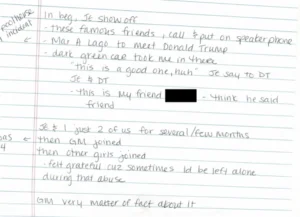 In beg, JE show off
- these famous friends, call & put on speaker phone
- Mar A Lago to meet Donald Trump
- dark green car took me in there
"this is a good one, huh" JE say to DT
JE & DT
- this is my friend - think he said
friend
JE & I just 2 of us for several/few months
then GM joined
then other girls joined
- felt grateful cuz sometimes Id be left alone
during that abuse
GM very matter of fact about it